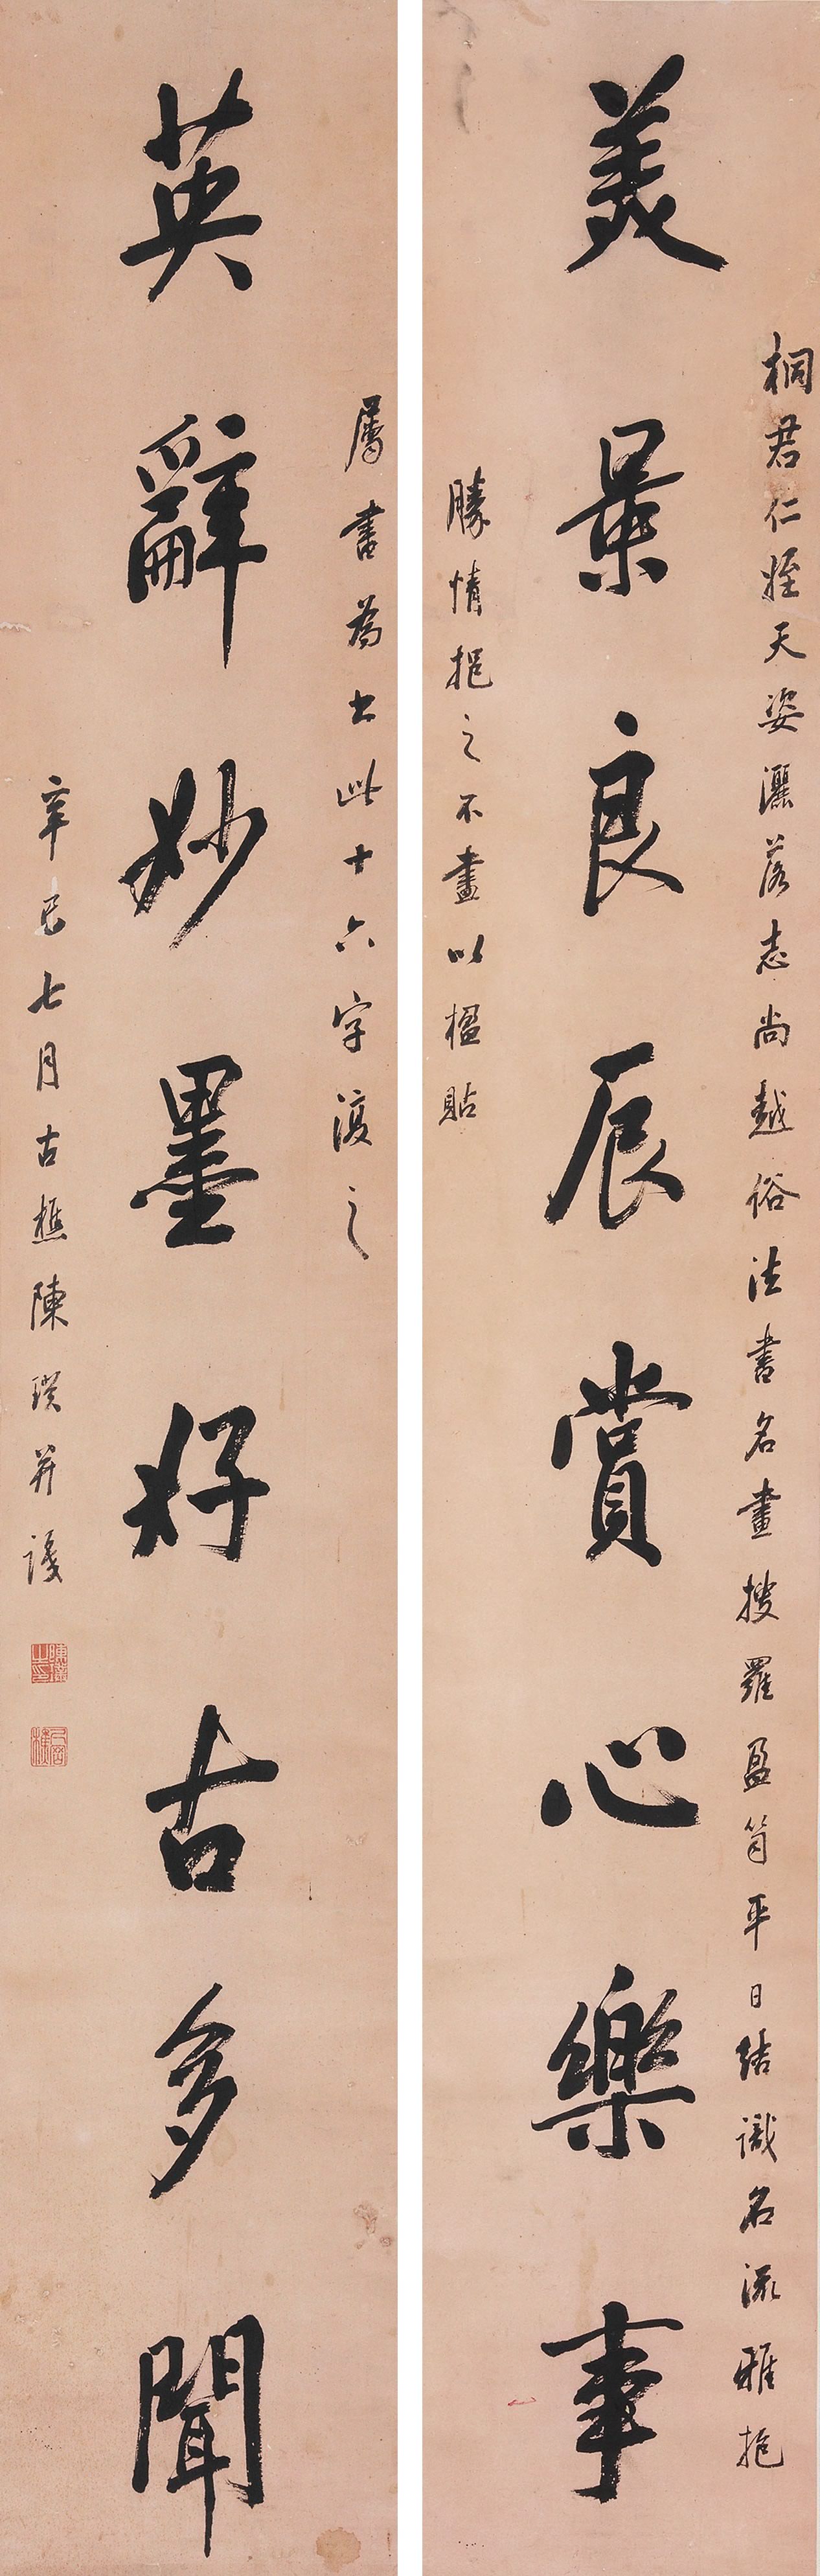 桐君仁姪天姿灑落志尚越俗法書名畫搜羅盈笥平日結識名流雅抱
美景良辰賞心樂事
勝情挹之不盡以楹貼
屬書為書此十六字復之
英辭妙墨好古多聞
辛巳七月古樵陳璞并識
陳璞之印